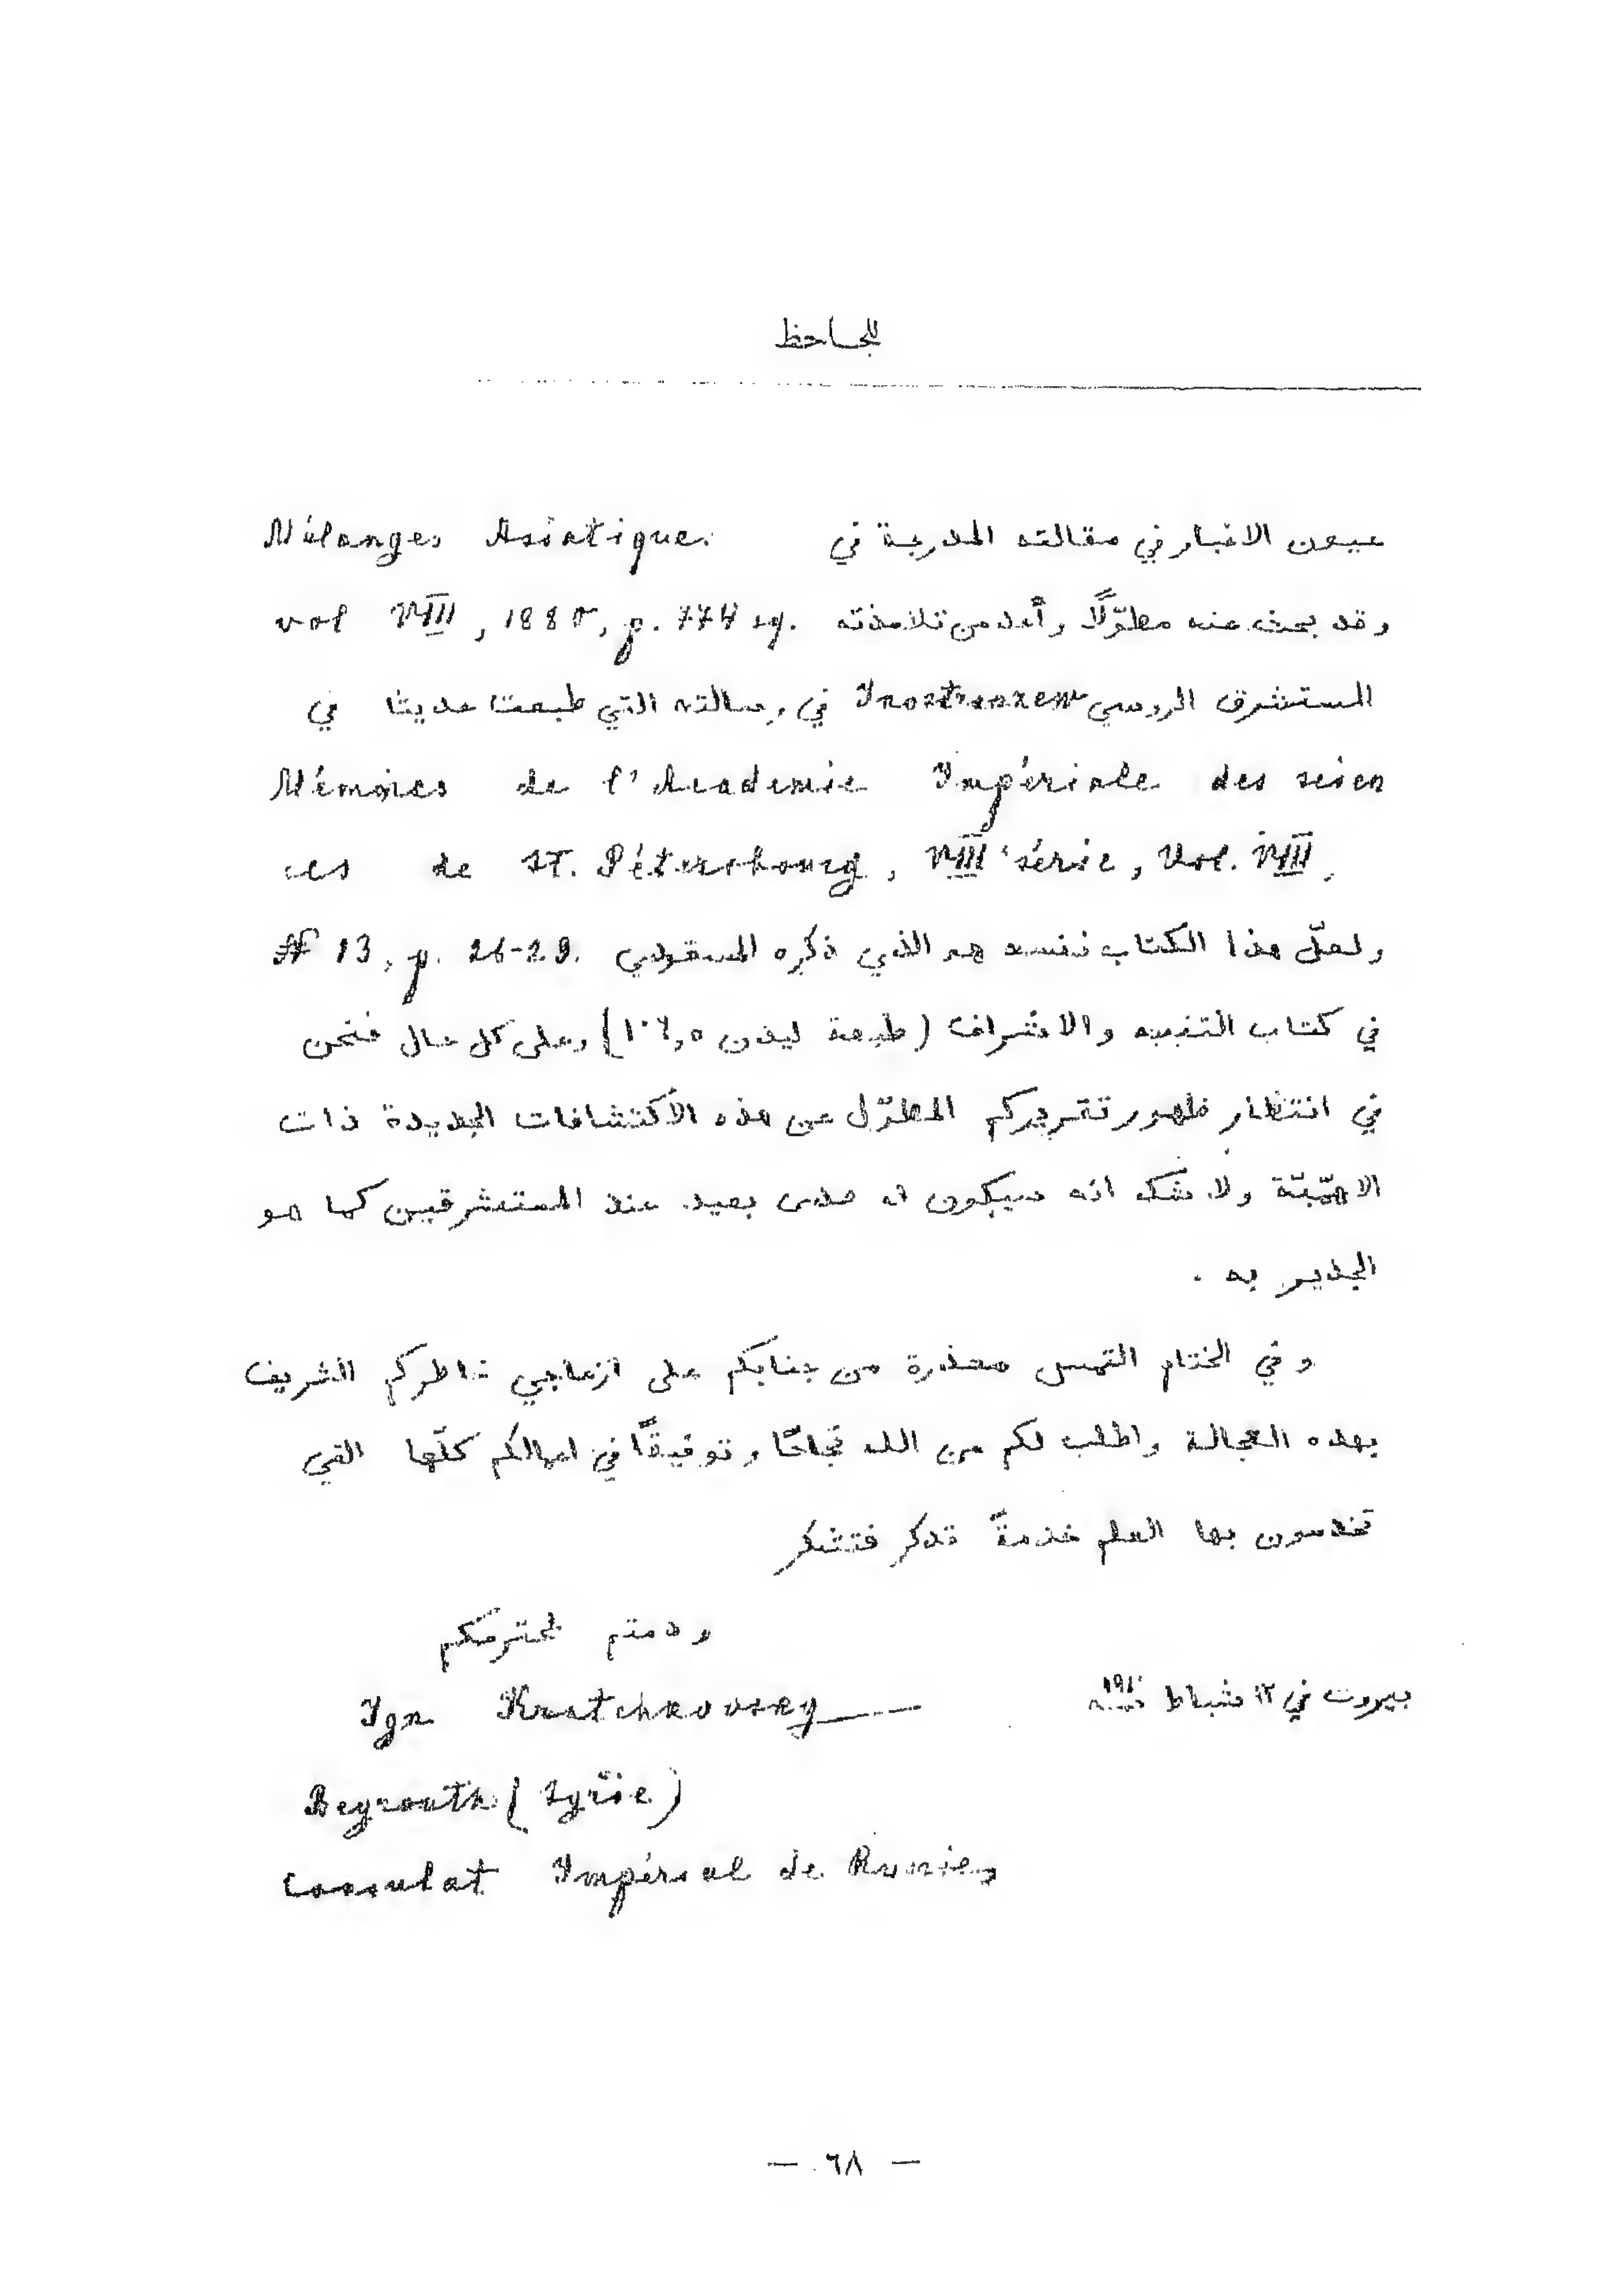 للجاحظ
عيون الاخبار في مقالته المدرجة في Mélanges Asiatiques
vol VIII, 1880, p. 774 sq. وقد بحث عنه مطوّلًا وأحد من تلامذته
المستشرق الروسي Inostranzew في رسالته التي طبعت حديثا في
Mémoires de l'Academie Impériale des scien
ces de St. Pétersbourg, VIII série, Vol. VIII,
№ 13, p. 26-29. ولعلّ هذا الكتاب نفسه هو الذي ذكره المسعودي
في كتاب التنبيه والاشراف (طبعة ليدن) وعلى كل حال فنحن
في انتظار ظهور تقريركم المطوّل عن هذه الأكتشافات الجديدة ذات
الاهمّيّة ولا شك انه سيكون له صدى بعيد عند المستشرقين كما هو
الجدير به .
وفي الختام التمس معذرة من جنابكم على ازعاجي خاطركم الشريف
بهذه العجالة واطلب لكم من الله نجاحًا وتوفيقًا في اعمالكم كلّها التي
تخدمون بها العلم خدمةً تذكر فتشكر
ودمتم لمحترمكم
بيروت في ١٢ شباط سنة ١٩١٠ Ign Kratchkovsky
Beyrouth (Syrie)
Consulat Impérial de Russie,
— ٦٨ —